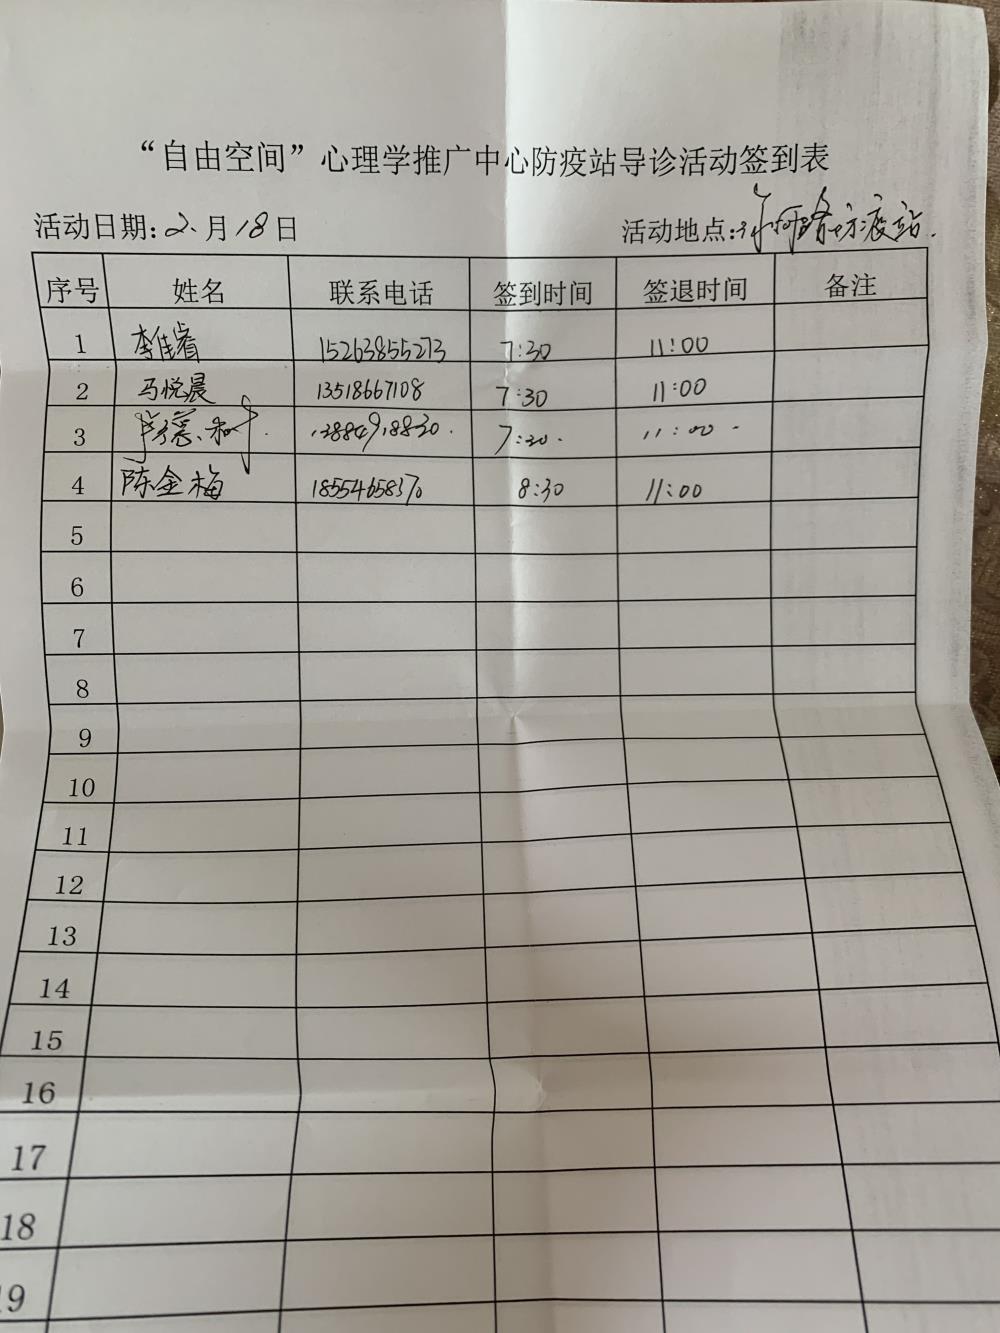 “自由空间”心理学推广中心防疫站导诊活动签到表
活动日期:2.月18日 活动地点:河路防疫站.
序号 姓名 联系电话 签到时间 签退时间 备注
1 李佳睿 15263855273 7:30 11:00
2 马悦晨 13518667108 7:30 11:00
3 13884918830. 7:30. 11:00.
4 陈金梅 18554658370 8:30 11:00
5
6
7
8
9
10
11
12
13
14
15
16
17
18
19